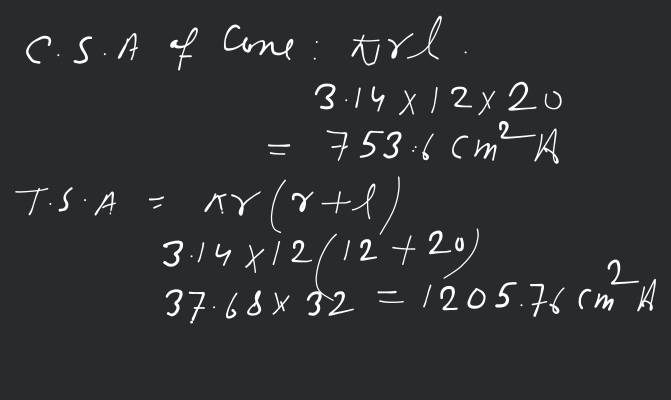 C.S.A of Cone : πrl.
3.14 x 12 x 20
= 753.6 cm² A
T.S.A = πr(r+l)
3.14 x 12(12 + 20)
37.68 x 32 = 1205.76 cm² A